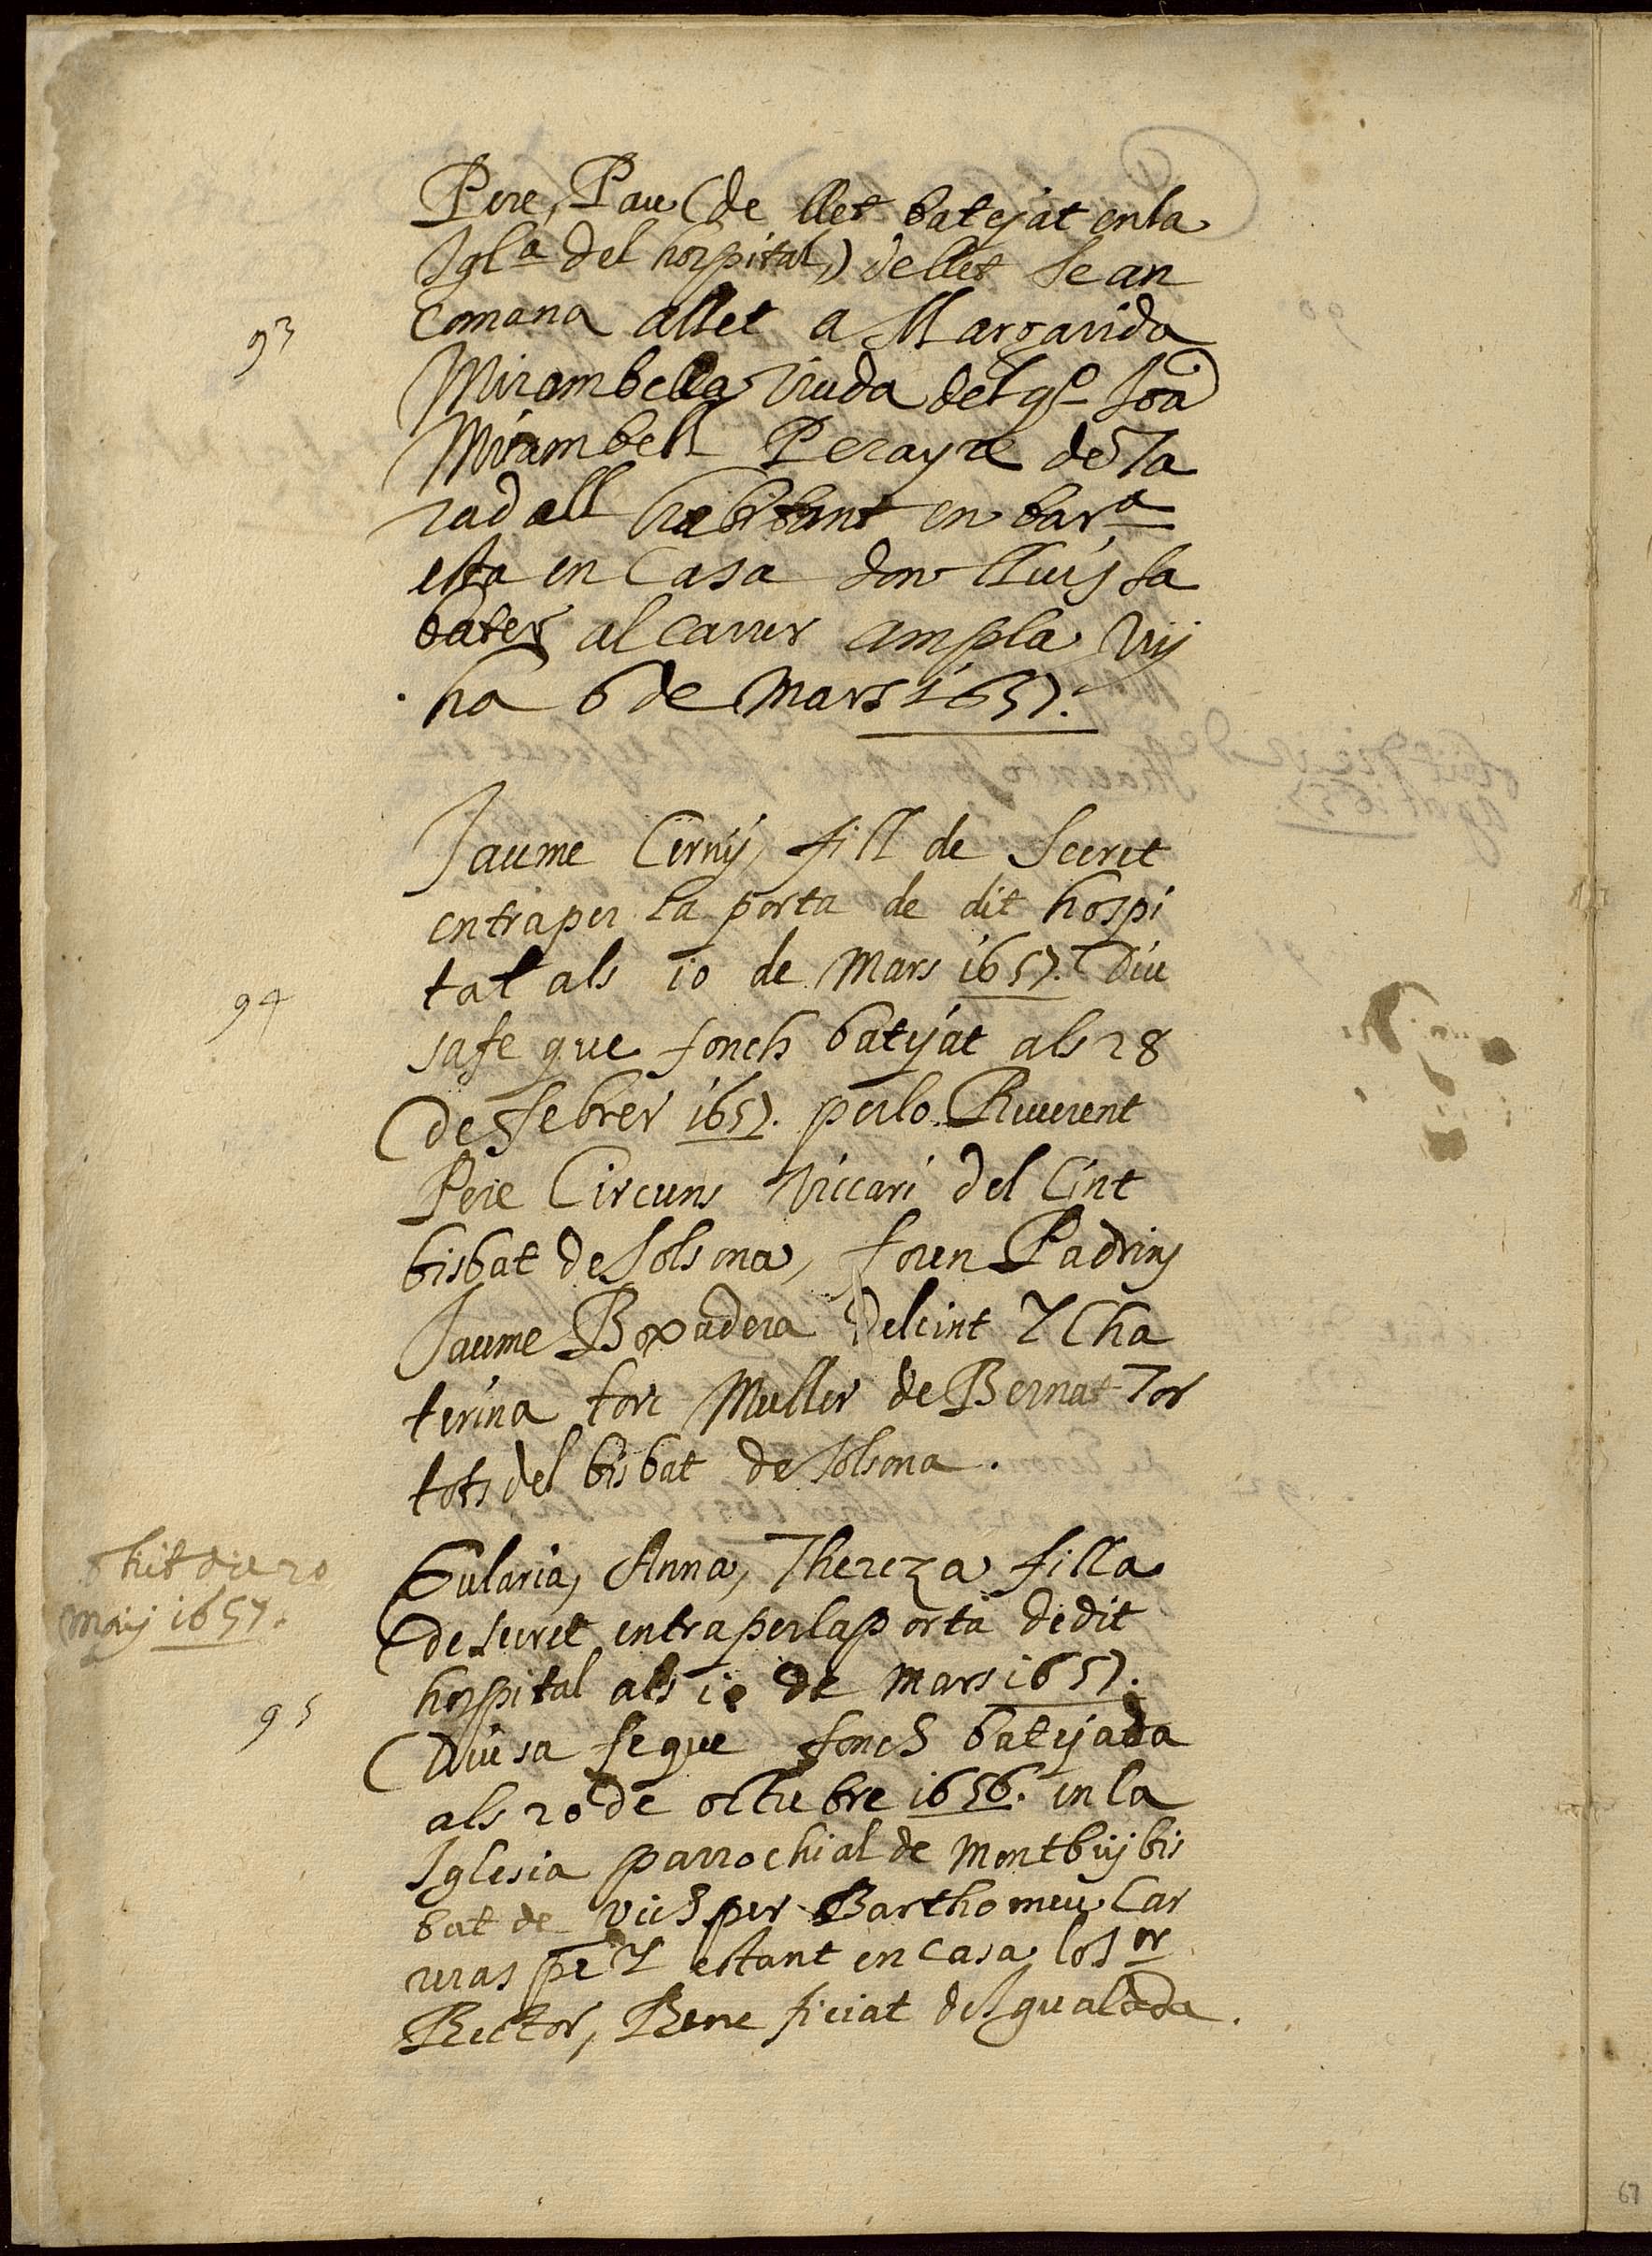 Pere, Pau (de llet batejat enla
Igl.ª del hospital,) dellet se an
93
comana allet a Margarida
Mirambella viuda del q.º Joã
Mirambell Perayre de Ta
radell habitant en bar.ª
esta en Casa don lluis sa
bater al carrer ampla vuy
ha 6 de Mars 1657.
Jaume Cerny, fill de Secret
entra per la porta de dit hospi
tal als 10 de Mars 1657. Diu
94
safe que fonch batyat als 28
de febrer 1657. perlo Reverent
Pere Circuns viccari del Cint
bisbat de Solsona, foren Padrins
Jaume Boxadera delcint Y Cha
terina tort Muller de Bernat Tor
tots del bisbat de Solsona.
Obiit die 20
Maij 1657.
Eularia, Anna, Thereza filla
de secret entra perlaporta dedit
hospital als 10 de Mars 1657.
95
Diu sa fe que fonch batejada
als 20 de octubre 1656. en la
Iglesia parrochial de Montbuy bis
bat de Vich per Barthomeu Car
reras pr̄e Y estant en casa lo s.or
Rector, Bene ficiat de Igualada.
67